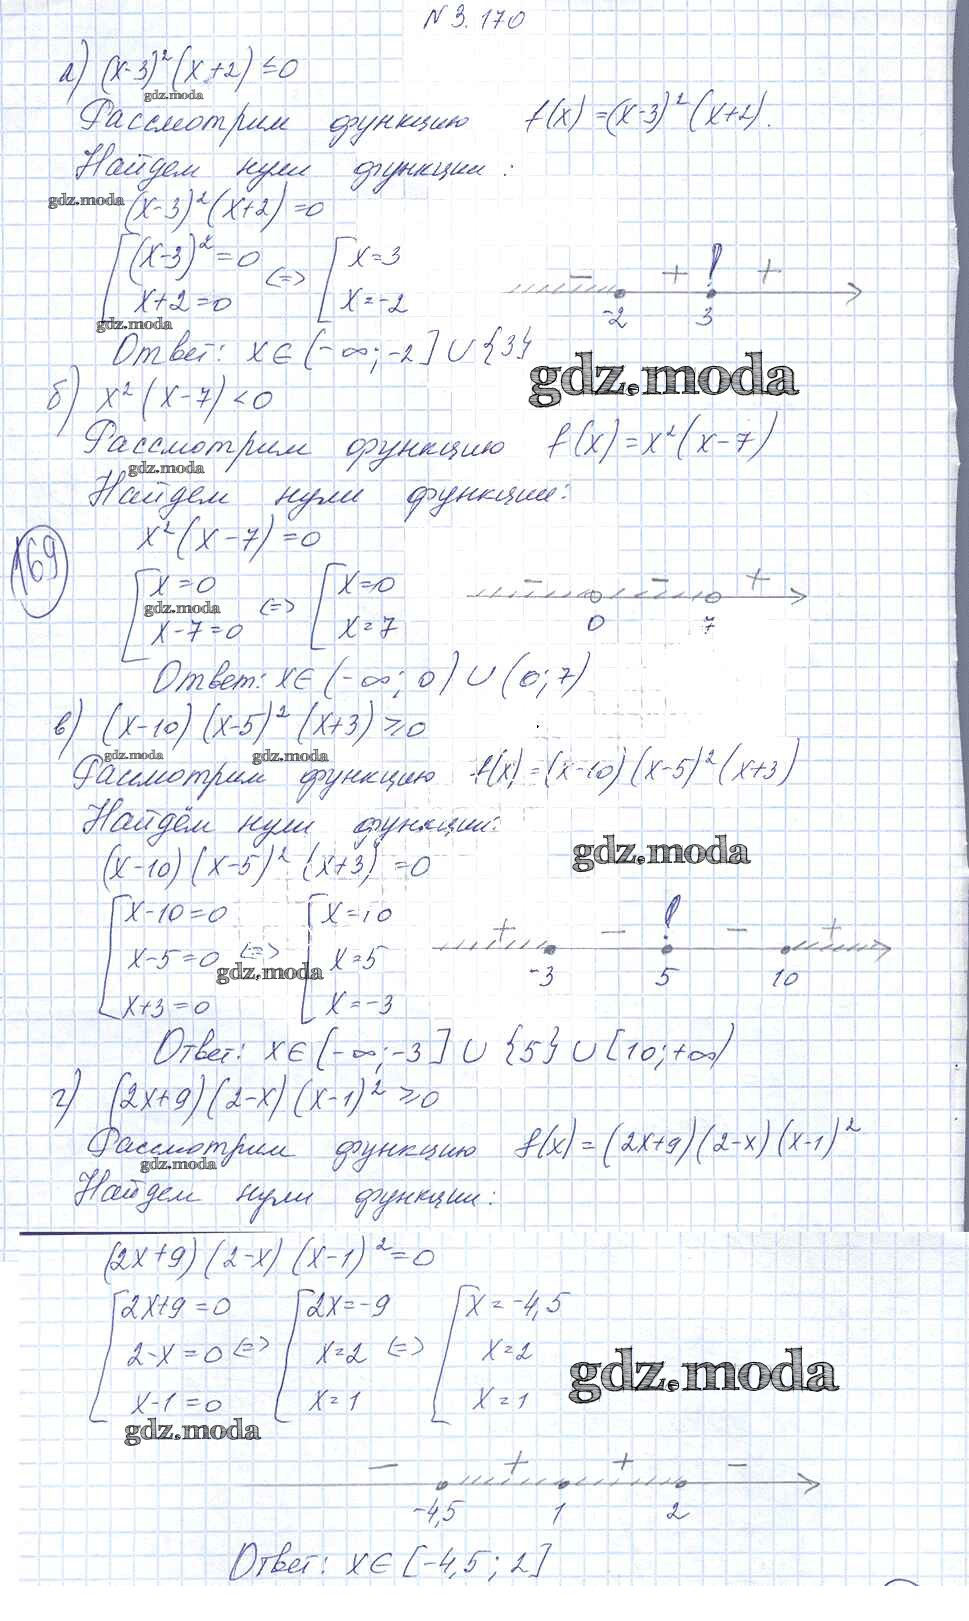 N 3.170
а) (x-3)²(x+2) ≤ 0
gdz.moda
Рассмотрим функцию f(x) = (x-3)²(x+2).
Найдем нули функции:
gdz.moda
(x-3)²(x+2) = 0
[(x-3)² = 0 <=> [x = 3
x+2 = 0 x = -2
gdz.moda
- + ! +
-2 3
Ответ: x ∈ (-∞; -2] ∪ {3}
gdz.moda
б) x²(x-7) < 0
Рассмотрим функцию f(x) = x²(x-7)
gdz.moda
Найдем нули функции:
x²(x-7) = 0
169
[x = 0 <=> [x = 0
gdz.moda
x-7 = 0 x = 7
- - +
0 7
Ответ: x ∈ (-∞; 0) ∪ (0; 7)
в) (x-10)(x-5)²(x+3) ≥ 0
gdz.moda gdz.moda
Рассмотрим функцию f(x) = (x-10)(x-5)²(x+3)
Найдём нули функции:
gdz.moda
(x-10)(x-5)²(x+3) = 0
[x-10 = 0 [x = 10
x-5 = 0 <=> x = 5
gdz.moda
x+3 = 0 x = -3
+ - ! - +
-3 5 10
Ответ: x ∈ (-∞; -3] ∪ {5} ∪ [10; +∞)
г) (2x+9)(2-x)(x-1)² ≥ 0
Рассмотрим функцию f(x) = (2x+9)(2-x)(x-1)²
gdz.moda
Найдем нули функции:
(2x+9)(2-x)(x-1)² = 0
[2x+9 = 0 [2x = -9 [x = -4,5
2-x = 0 <=> x = 2 <=> x = 2
x-1 = 0 x = 1 x = 1
gdz.moda
gdz.moda
- + + -
-4,5 1 2
Ответ: x ∈ [-4,5; 2]